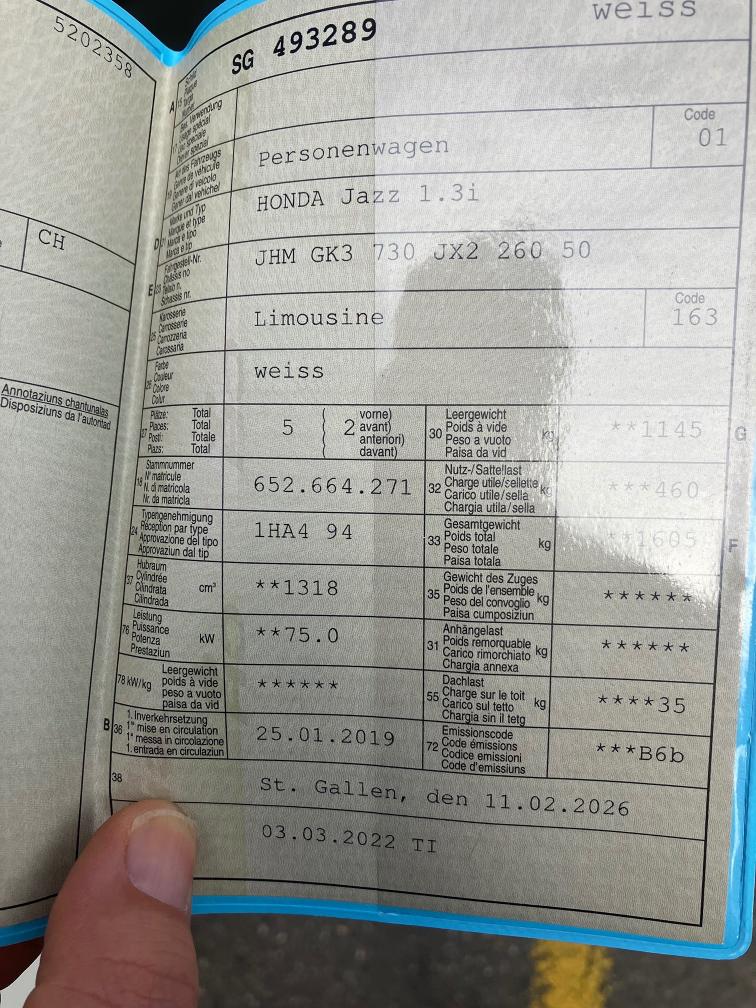 5202358
CH
Annotaziuns chantunalas
Disposiziuns da l'autoritad
weiss
SG 493289
A 15 Schild
Plaque
Targa
Numer
17 Bes. Verwendung
Usage spécial
Uso speciale
Diever spezial
19 Art des Fahrzeugs
Genre de véhicule
Genere di veicolo
Gener dal vehichel
Personenwagen
Code
01
D 21 Marke und Typ
Marque et type
Marca e tipo
Marca e tip
HONDA Jazz 1.3i
E 23 Fahrgestell-Nr.
Châssis no
Telaio n.
Schassis nr.
JHM GK3 730 JX2 260 50
25 Karosserie
Carrosserie
Carrozzeria
Carossaria
Limousine
Code
163
26 Farbe
Couleur
Colore
Colur
weiss
27 Plätze: Total
Places: Total
Posti: Totale
Plazs: Total
5 ( 2 vorne)
avant)
anteriori)
davant)
30 Leergewicht
Poids à vide
Peso a vuoto
Paisa da vid
kg
**1145
G
18 Stammnummer
N° matricule
N. di matricola
Nr. da matricla
652.664.271
32 Nutz-/Sattellast
Charge utile/sellette
Carico utile/sella
Chargia utila/sella
kg
***460
24 Typengenehmigung
Réception par type
Approvazione del tipo
Approvaziun dal tip
1HA4 94
33 Gesamtgewicht
Poids total
Peso totale
Paisa totala
kg
**1605
F
37 Hubraum
Cylindrée
Cilindrata
Cilindrada
cm³
**1318
35 Gewicht des Zuges
Poids de l'ensemble
Peso del convoglio
Paisa cumposiziun
kg
******
76 Leistung
Puissance
Potenza
Prestaziun
kW
**75.0
31 Anhängelast
Poids remorquable
Carico rimorchiato
Chargia annexa
kg
******
78 kW/kg
Leergewicht
poids à vide
peso a vuoto
paisa da vid
******
55 Dachlast
Charge sur le toit
Carico sul tetto
Chargia sin il tetg
kg
****35
B 36 1. Inverkehrsetzung
1re mise en circulation
1a messa in circolazione
1. entrada en circulaziun
25.01.2019
72 Emissionscode
Code émissions
Codice emissioni
Code d'emissiuns
***B6b
38
St. Gallen, den 11.02.2026
03.03.2022 TI